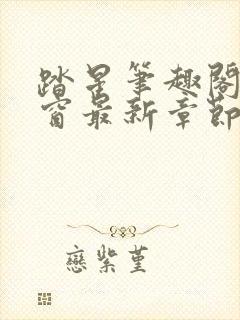 踏星笔趣阁
窗最新章节
恋紫堇